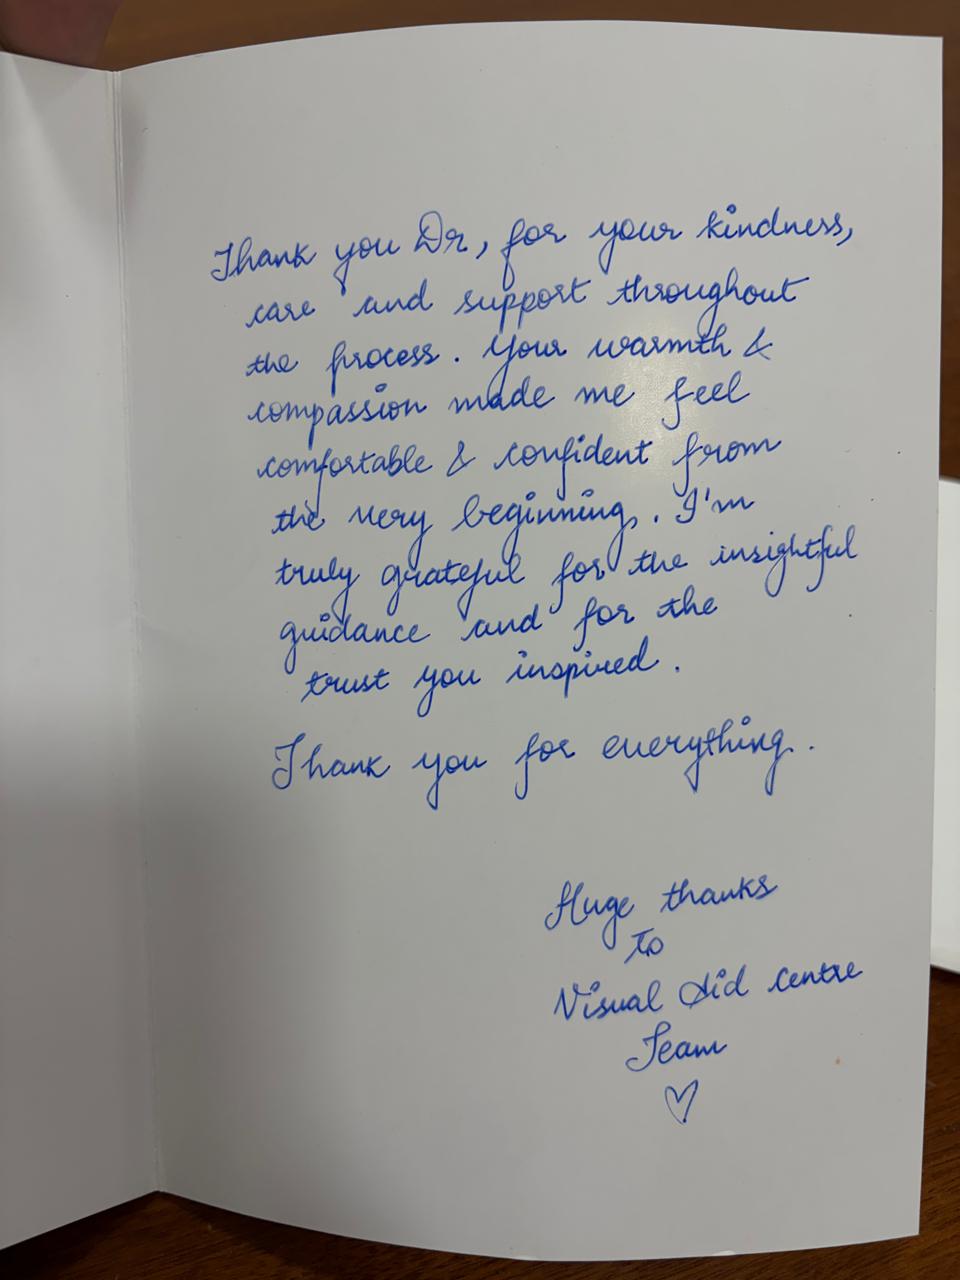 Thank you Dr, for your kindness,
care and support throughout
the process. Your warmth &
compassion made me feel
comfortable & confident from
the very beginning. I'm
truly grateful for the insightful
guidance and for the
trust you inspired.
Thank you for everything.
Huge thanks
To
Visual Aid centre
Team